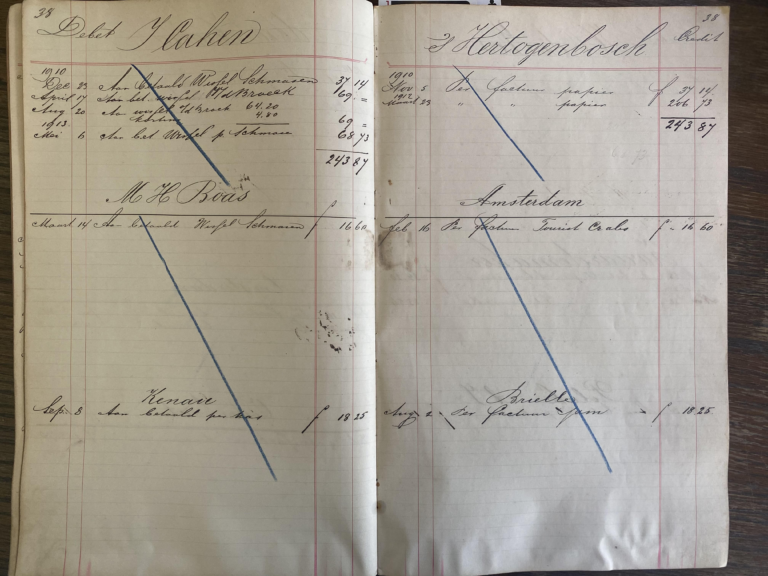 38
Debet I Cahen
1910
Dec 23 Aan betaald Wissel Schmasen 37 14
April 17 Aan bet. wissel v/d Broeck 69 =
Aug 20 Aan wissel v/d Broeck 64.20
4.80 69 =
1913
Mei 6 Aan bet Wissel p. Schmasen 68 73
243 87
M H Boas
Maart 14 Aan betaald Wissel Schmasen f 16 60
Kenau
Sep 8 Aan betaald per kas f 18 25
38
's Hertogenbosch Credit
1910
Nov 5 Per factuur papier f 37 14
1912
Maart 23 " " papier 206 73
243 87
Amsterdam
Feb 16 Per factuur Tourist f 16 60
Brielle
Aug 2 Per factuur f 18 25